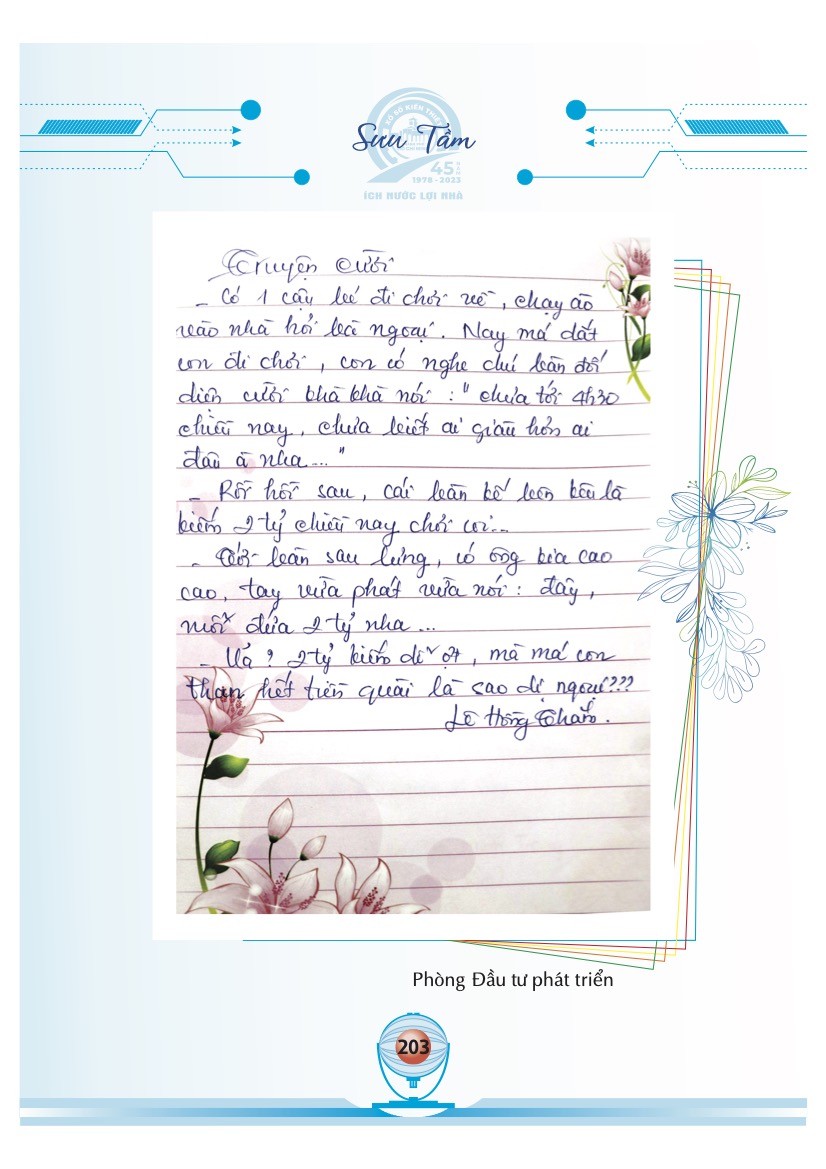 XỔ SỐ KIẾN THIẾT
Sưu Tầm
45 NĂM
1978 - 2023
ÍCH NƯỚC LỢI NHÀ
Truyện cười
- Có 1 cậu bé đi chơi về, chạy ào
vào nhà hỏi bà ngoại. Nay má dắt
con đi chơi, con có nghe chú bàn đối
diện cười khà khà nói : " chưa tới 4h30
chiều nay, chưa biết ai giàu hơn ai
đâu à nha... "
- Rồi hồi sau, cái bàn kế bên kêu là
kiếm 2 tỷ chiều nay chơi coi...
- Tới bàn sau lưng, có ông kia cao
cao, tay vừa phát vừa nói : đây,
mỗi đứa 2 tỷ nha ...
- Uả ? 2 tỷ kiếm dễ ợt, mà má con
than hết tiền quài là sao dị ngoại ???
Lê Hồng Thắm.
Phòng Đầu tư phát triển
203